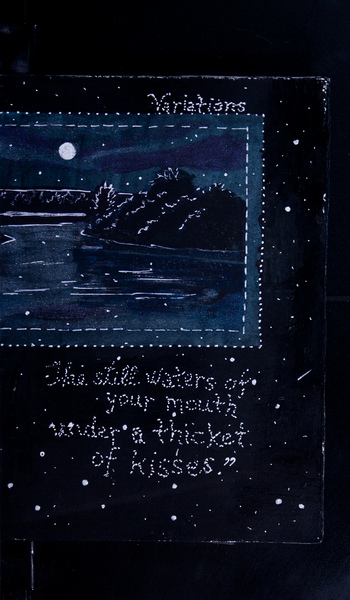 Variations
The still waters of
your mouth
under a thicket
of kisses."